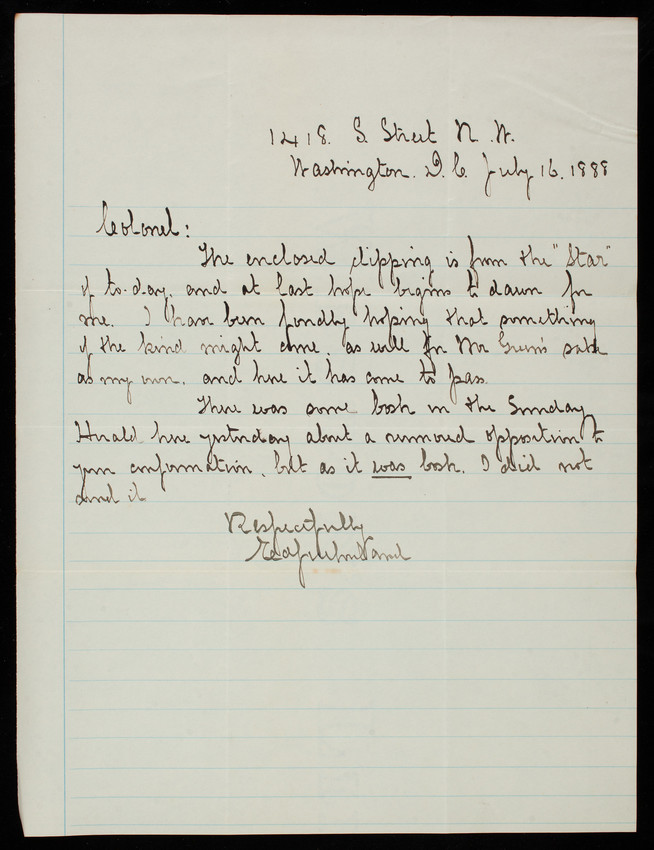 1418. S. Street N.W.
Washington. D.C. July 16. 1888
Colonel:
The enclosed clipping is from the "Star"
of to-day, and at last hope begins to dawn for
me. I have been fondly hoping that something
of the kind might come, as well for Mr Green's sake
as my own, and here it has come to pass.
There was some bosh in the Sunday
Herald here yesterday about a rumored opposition to
your confirmation, but as it was bosh, I did not
send it
Respectfully